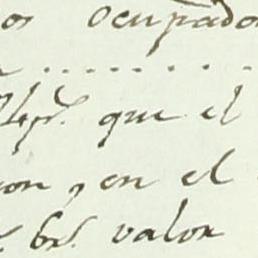 os ocupado
que el
on, en el
6rs. valor